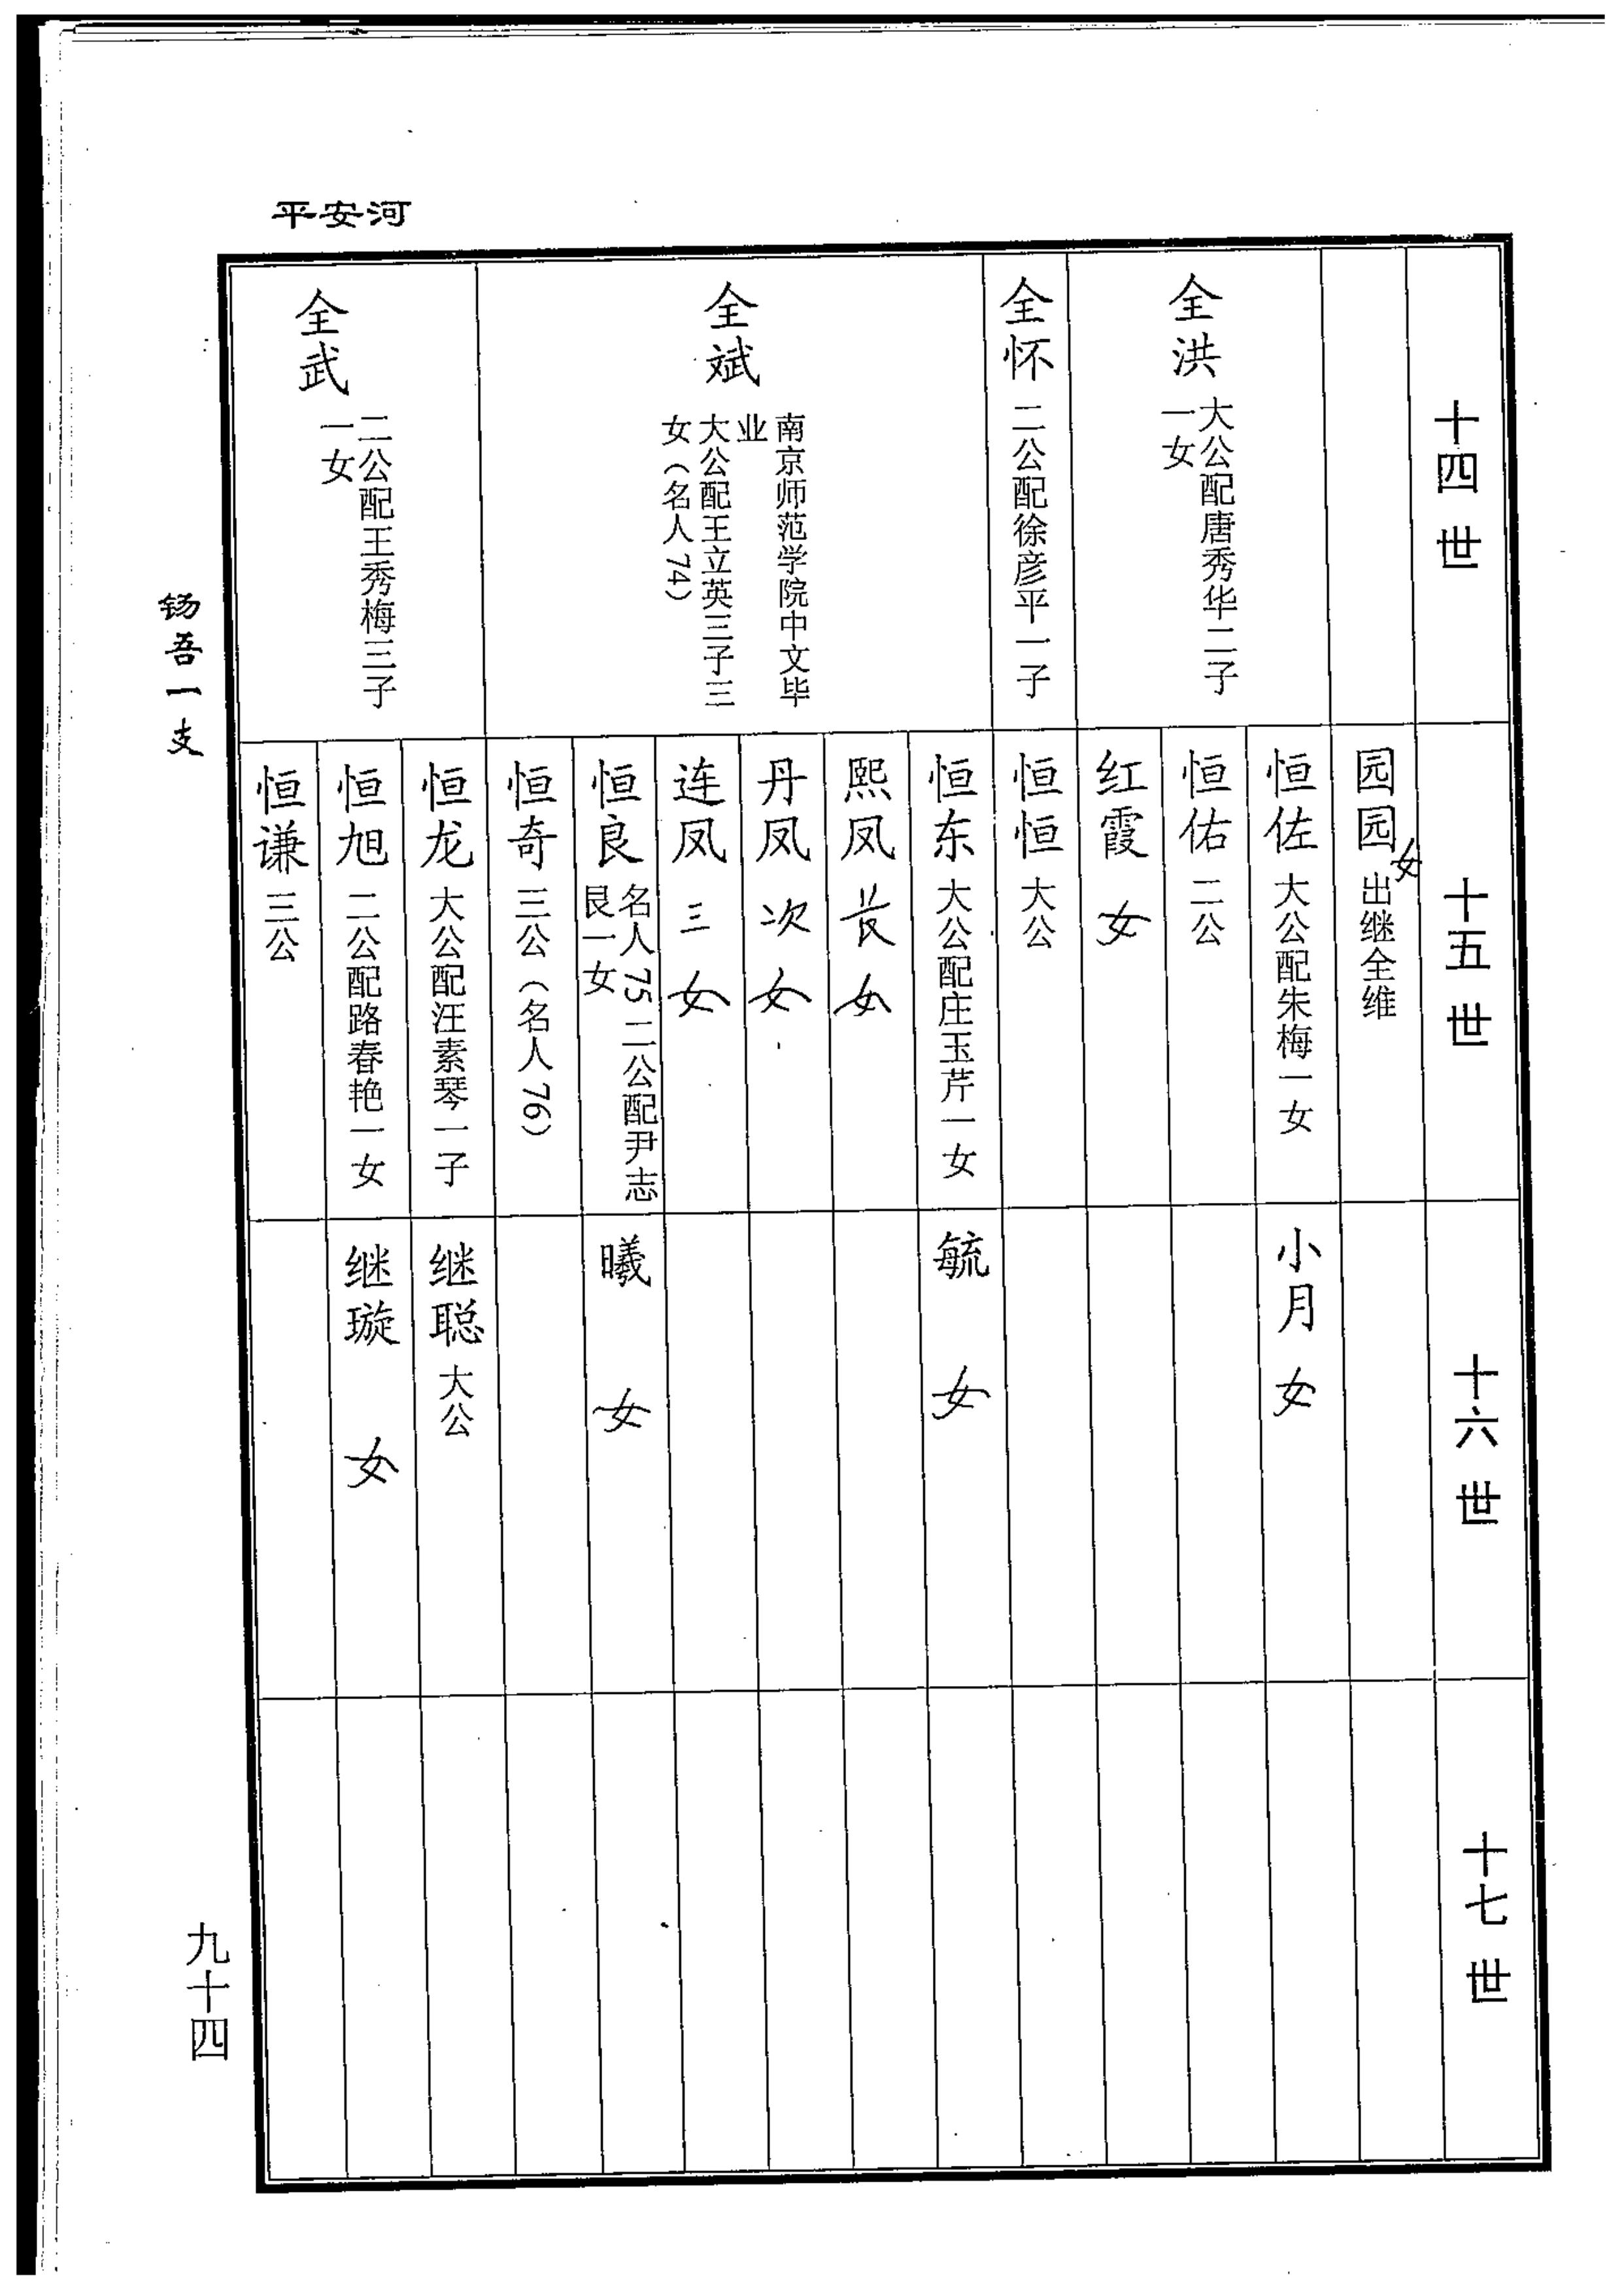 平安河
十四世
十五世
十六世
十七世
园园 女 出继全维
全洪
大公配唐秀华二子
一女
恒佐 大公配朱梅一女
小月 女
恒佑 二公
红霞 女
全怀 二公配徐彦平一子
恒恒 大公
全斌
南京师范学院中文毕
业
大公配王立英三子三
女（名人74）
恒东 大公配庄玉芹一女
毓 女
熙凤 长女
丹凤 次女
连凤 三女
恒良
名人75 二公配尹志
艮一女
曦 女
恒奇 三公（名人76）
全武
二公配王秀梅三子
一女
恒龙 大公配汪素琴一子
继聪 大公
恒旭 二公配路春艳一女
继璇 女
恒谦 三公
钖吾一支
九十四